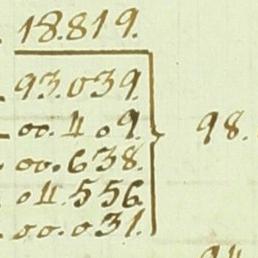 18.819.
93.039
00.409.
00.638.
04.556
00.031.
98.